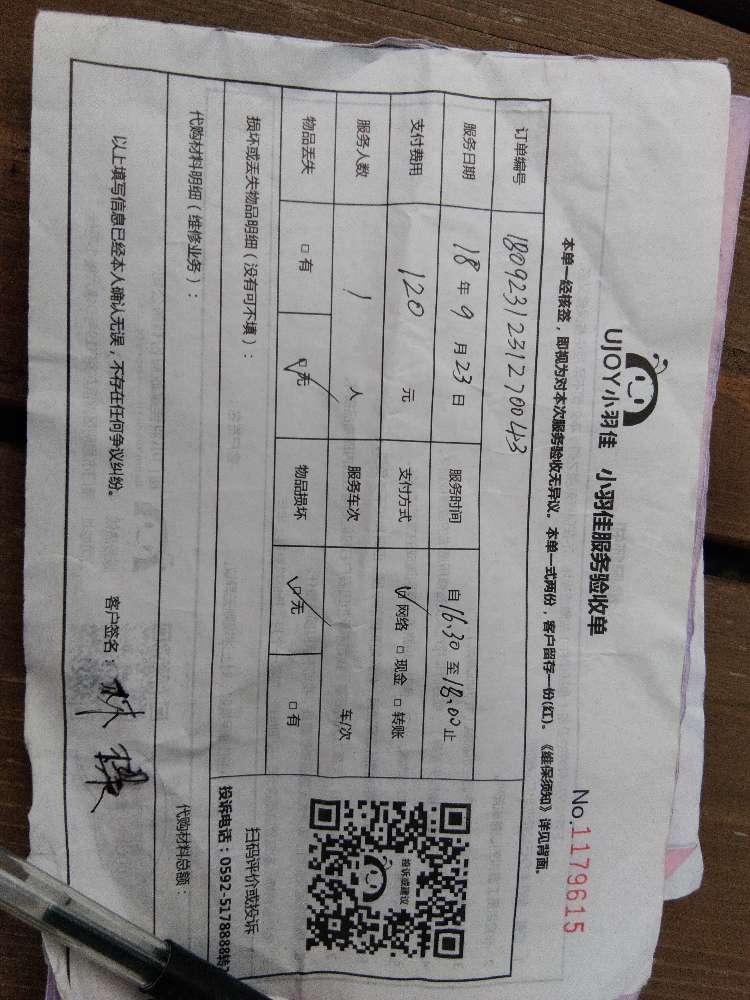 UJOY小羽佳 小羽佳服务验收单
No.1179615
本单一经核签，即视为对本次服务验收无异议。本单一式两份，客户留存一份(红)。《维保须知》详见背面。
订单编号 1809231231270043
服务日期 18年9月23日 服务时间 自16:30至18:00止
支付费用 120元 支付方式 ☑网络 □现金 □转账
服务人数 1人 服务车次 车/次
物品丢失 □有 ☑无 物品损坏 ☑无 □有
投诉或建议
扫码评价或投诉
投诉电话：0592-5178888转
损坏或丢失物品明细（没有可不填）：
代购材料明细（维修业务）：
代购材料总额：
以上填写信息已经本人确认无误，不存在任何争议纠纷。
客户签名：林